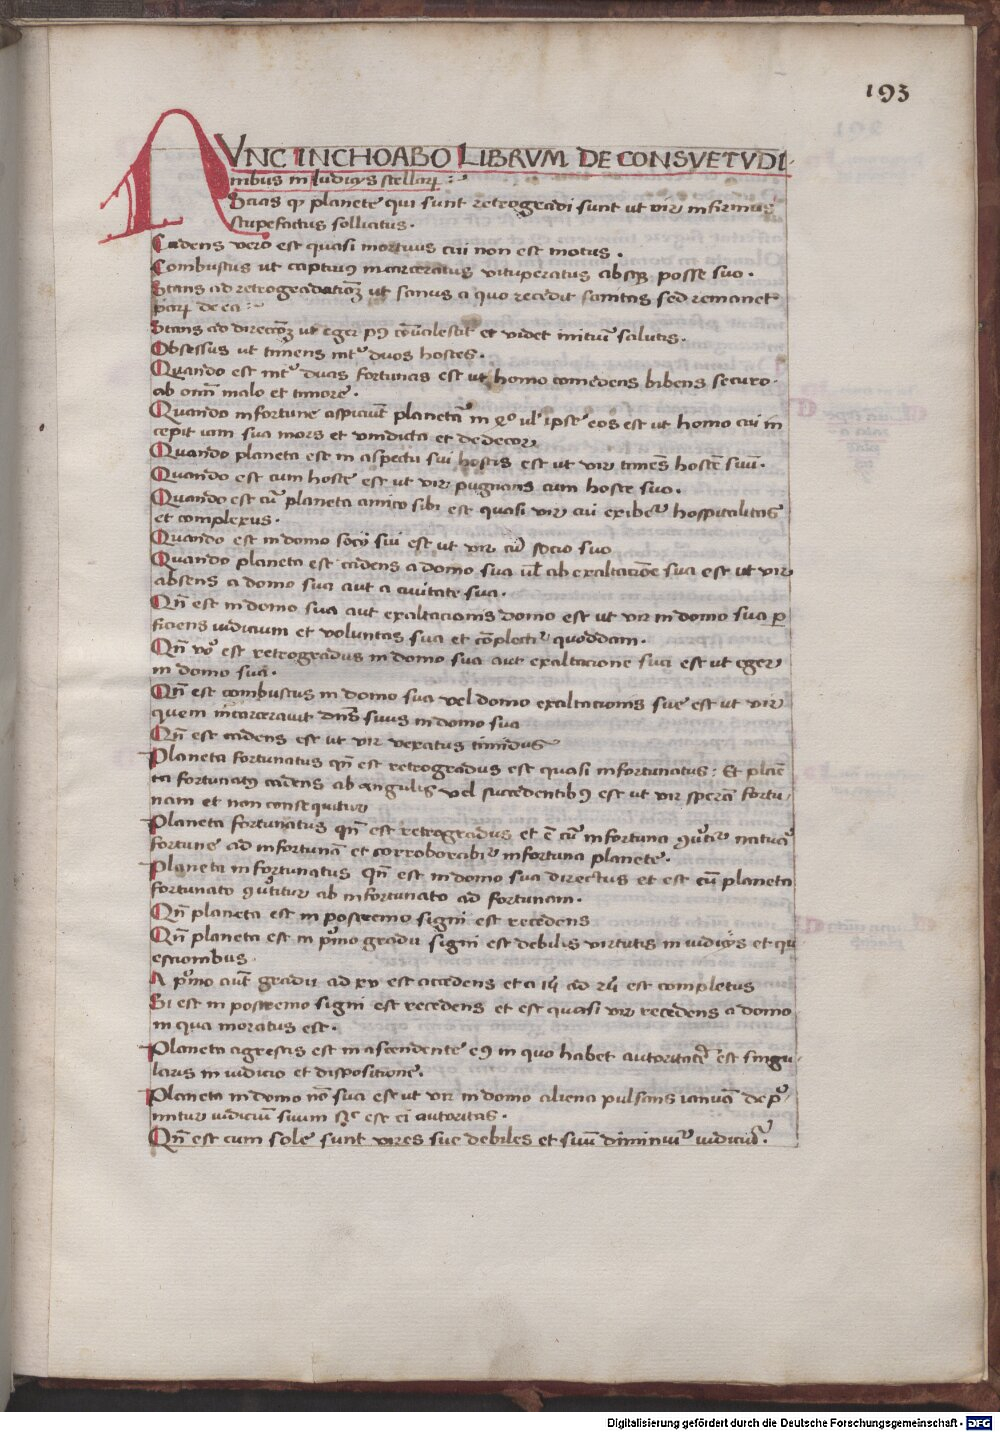 193
NVNC INCHOABO LIBRVM DE CONSVETVDI
nibus in Iudicijs stellarꝝ :~
Scias qꝫ planete qui sunt retrogradi sunt ut vir infirmus
stupefactus sollicitus.
Cadens vero est quasi mortuus cui non est motus.
Combustus ut captiuꝰ incarceratus vituperatus absqꝫ posse suo.
Stans ad retrogradationꝫ ut sanus a quo recedit sanitas sed remanet
parꝝ de ea :~
Stans ad direccōꝫ ut eger pꝰ cōualescit et videt initiū salutis.
Obsessus ut timens intꝰ duos hostes.
Quando est intꝰ duas fortunas est ut homo comedens bibens securo
ab omī malo et timore.
Quando infortune aspiciūt planetā in qꝰ ul' ipse eos est ut homo cui in
cepit iam sua mors et vindicta et dedecorꝰ
Quando planeta est in aspectu sui hostis est ut vir timēs hostē suū.
Quando est cum hoste est ut vir pugnans cum hoste suo.
Quando est cū planeta amico sibi est quasi vir cui exibetꝰ hospitalitas
et complexus.
Quando est in domo socij sui est ut vir cū socio suo
Quando planeta est cadens a domo sua ul' ab exaltacōe sua est ut vir
absens a domo sua aut a ciuitate sua.
Qn̄ est in domo sua aut exaltacionis domo est ut vir in domo sua ꝑ
ficiens iudicium et voluntas sua et cōplectꝰ quoddam.
Qn̄ vꝰo est retrogradus in domo sua aut exaltacione sua est ut eger
in domo sua.
Qn̄ est combustus in domo sua vel domo exaltacionis sue est ut vir
quem incarcerauit dn̄s suus in domo sua
Qn̄ est cadens est ut vir vexatus timidus
Planeta fortunatus qn̄ est retrogradus est quasi infortunatus: Et plane
ta fortunatꝰ cadens ab angulis vel succedentibꝰ est ut vir sperās fortu
nam et non consequitur
Planeta fortunatus qn̄ est retrogradus et ē cū infortuna ꝯūtitꝰ natura
fortune ad infortunā et corroborabitꝰ infortuna planete.
Planeta infortunatus qn̄ est in domo sua directus et est cū planeta
fortunato ꝯūtitur ab infortunato ad fortunam.
Qn̄ planeta est in postremo signi est recedens
Qn̄ planeta est in pꝰmo gradu signi est debilis virtutis in iudicijs et qu
estionibus
A pꝰmo aut̄ gradu ad xv est accedens et a iij ad xij est completus
Si est in postremo signi est recedens et est quasi vir recedens a domo
in qua moratus est.
Planeta agrestis est in ascendente eꝰ in quo habet autoritatē est singu
laris in iudicio et dispositione.
Planeta in domo nō sua est ut vir in domo aliena pulsans ianuā depꝰ
mitur iudiciū suum est ei autoritas.
Qn̄ est cum sole sunt vires sue debiles et suū diminuitꝰ iudiciū.
Digitalisierung gefördert durch die Deutsche Forschungsgemeinschaft - DFG